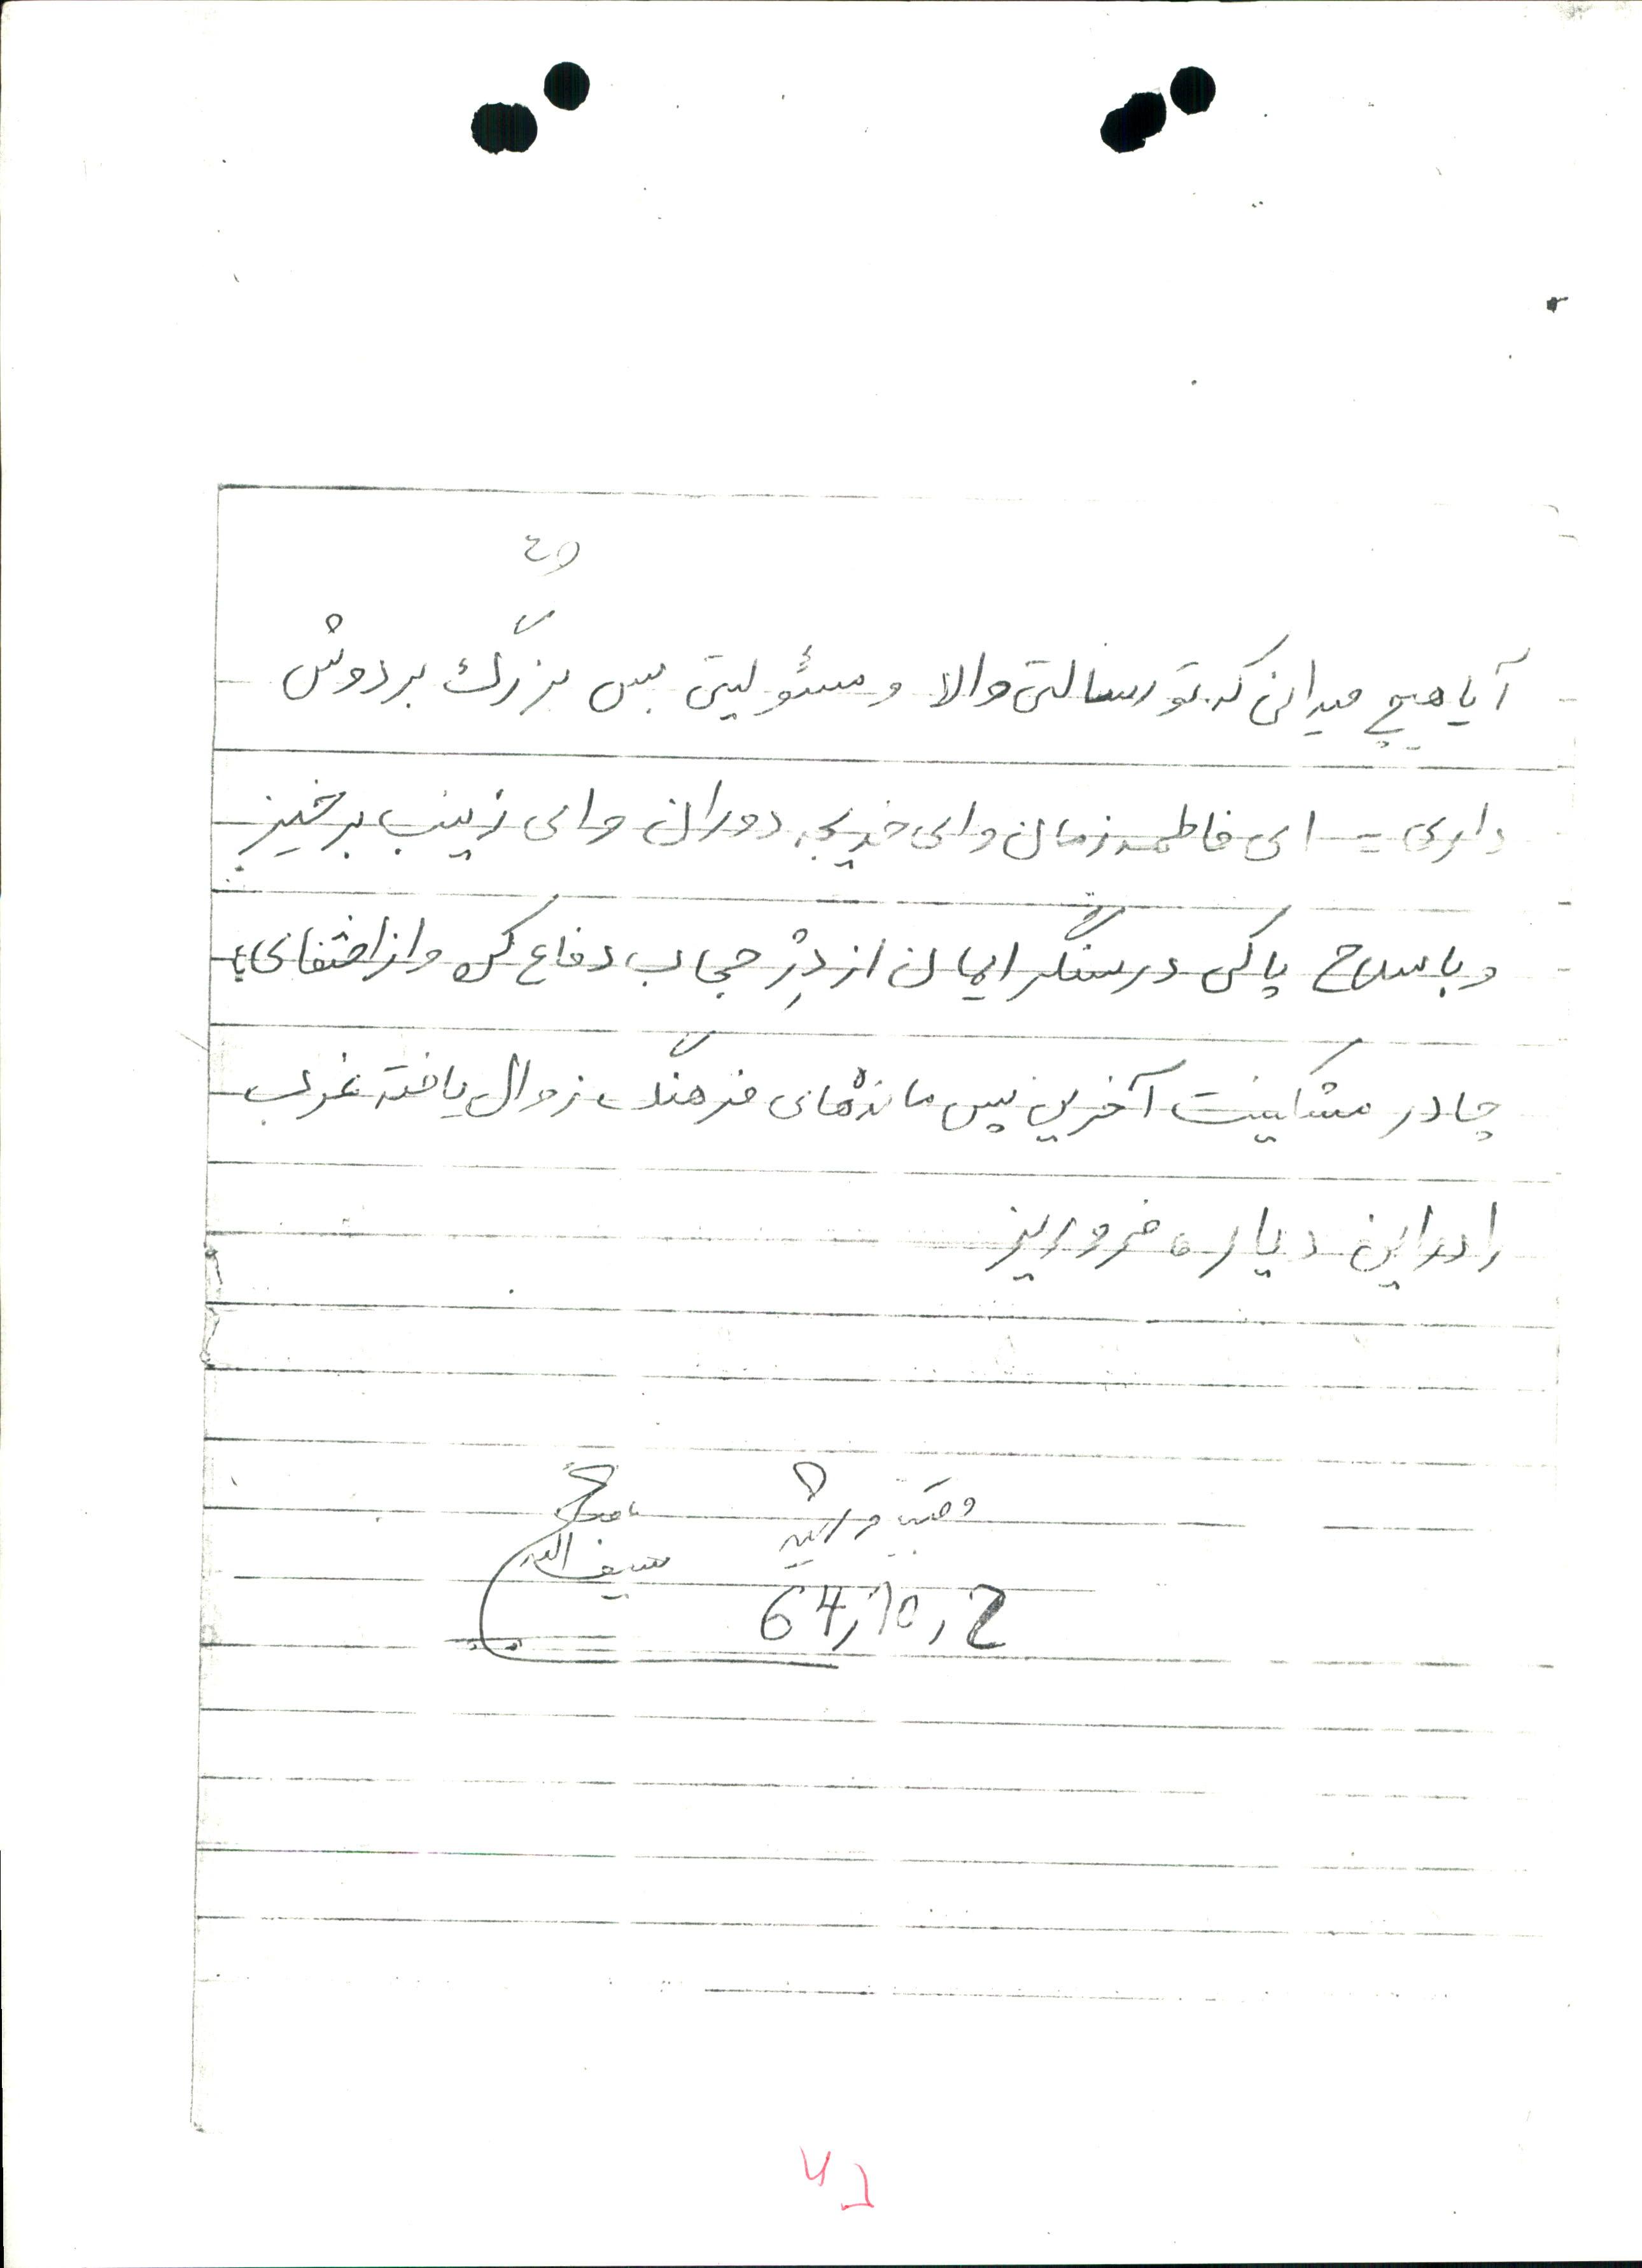 آیا هیچ میدانی که تو رسالتی والا و مسئولیتی بس بزرگ بر دوش
داری = ای فاطمه زمان و ای خدیجه دوران و ای زینب برخیز
و با سلاح پاکی در سنگر ایمان از دِژ حجاب دفاع کن و از
چادر مشکینت آخرین پس مانده‌های فرهنگ زوال یافته غرب
را در این دیار، فرو ریز
سیف الله
64,10,2